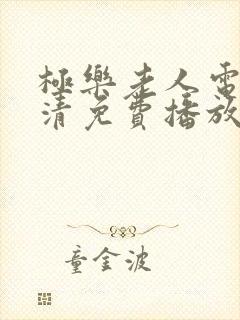 極樂老人電
清免費播放
童金波